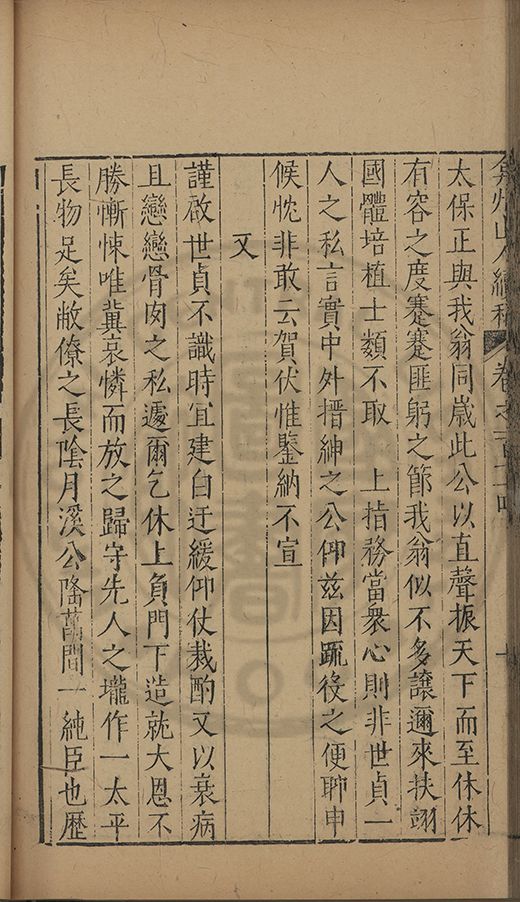 弇州山人續稿 卷之一百二
太保正與我翁同歲此公以直聲振天下而至休休
有容之度蹇蹇匪躬之節我翁似不多讓邇來扶翊
國體培植士類不取 上指務當衆心則非世貞一
人之私言實中外搢紳之公仰茲因䟽役之便聊申
候忱非敢云賀伏惟鑒納不宣
又
謹啟世貞不識時宜建白迂緩仰仗裁酌又以衰病
且戀戀骨肉之私遽爾乞休上負門下造就大恩不
勝慚悚唯冀哀憐而放之歸守先人之壠作一太平
長物足矣敝僚之長陰月溪公隆萬間一純臣也歷